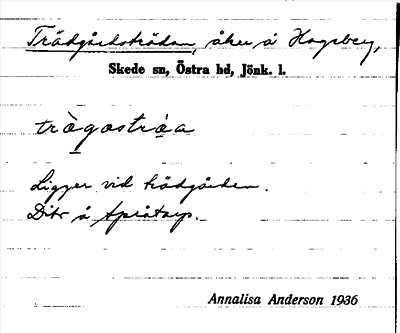 Trädgårdsträdan, åker å Hagaberg,
Skede sn, Östra hd, Jönk. l.
trògɑstrà̱a
Ligger vid trädgården.
Dito å Apråtorp.
Annalisa Anderson 1936